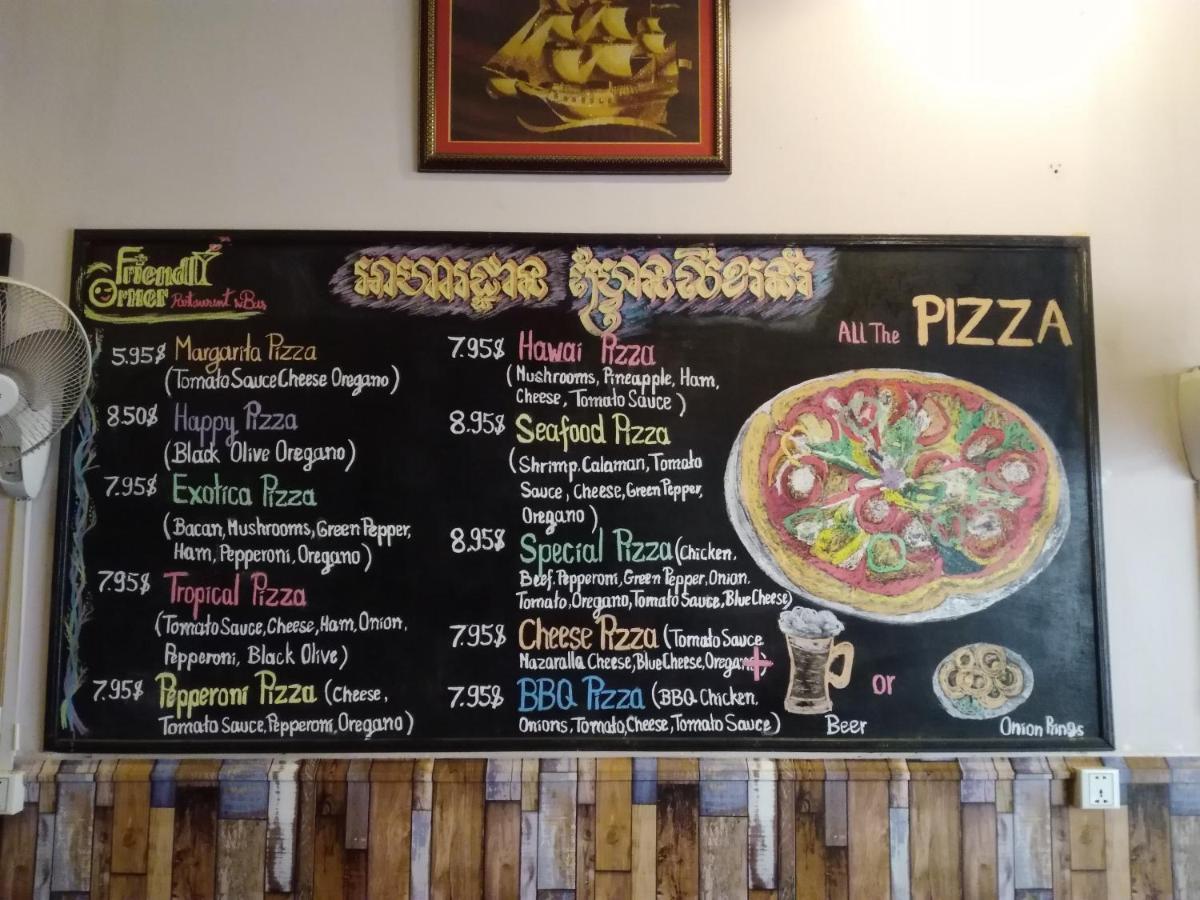 Friendly
Corner Restaurent & Bar
អាហារដ្ឋាន
All The PIZZA
5.95$ Margarita Pizza
(Tomato Sauce Cheese Oregano)
8.50$ Happy Pizza
(Black Olive Oregano)
7.95$ Exotica Pizza
(Bacan, Mushrooms, Green Pepper,
Ham, Pepperoni, Oregano)
7.95$ Tropical Pizza
(Tomato Sauce, Cheese, Ham, Onion,
Pepperoni, Black Olive)
7.95$ Pepperoni Pizza (Cheese,
Tomato Sauce, Pepperoni, Oregano)
7.95$ Hawai Pizza
(Mushrooms, Pineapple, Ham,
Cheese, Tomato Sauce)
8.95$ Seafood Pizza
(Shrimp, Calamari, Tomato
Sauce, Cheese, Green Pepper,
Oregano)
8.95$ Special Pizza (Chicken,
Beef, Pepperoni, Green Pepper, Onion,
Tomato, Oregano, Tomato Sauce, Blue Cheese)
7.95$ Cheese Pizza (Tomato Sauce
Mazaralla Cheese, Blue Cheese, Oregano)
7.95$ BBQ Pizza (BBQ Chicken,
Onions, Tomato, Cheese, Tomato Sauce)
+ or
Beer
Onion Rings